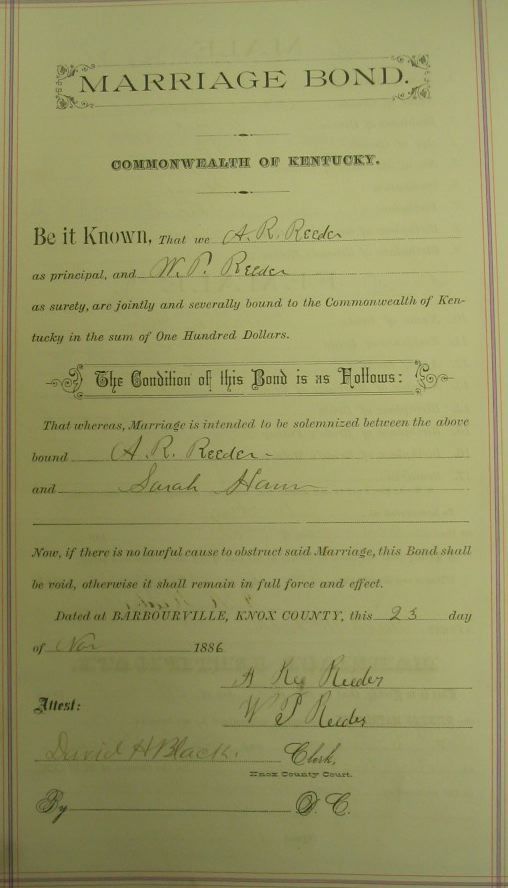 MARRIAGE BOND.
COMMONWEALTH OF KENTUCKY.
Be it Known, That we A. R. Reeder
as principal, and W. P. Reeder
as surety, are jointly and severally bound to the Commonwealth of Ken-
tucky in the sum of One Hundred Dollars.
The Condition of this Bond is as Follows:
That whereas, Marriage is intended to be solemnized between the above
bound A. R. Reeder
and Sarah
Now, if there is no lawful cause to obstruct said Marriage, this Bond shall
be void, otherwise it shall remain in full force and effect.
Dated at BARBOURVILLE, KNOX COUNTY, this 23 day
of Nov 1886
A Reeder
W P Reeder
Attest:
David H Black. Clerk,
Knox County Court.
By D. C.